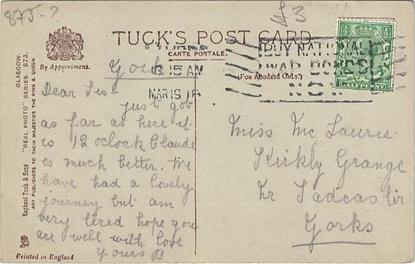 875-?
#3
TUCK'S POST CARD
CARTE POSTALE.
By Appointment.
(For Address Only.)
GLASGOW.
"REAL PHOTO" SERIES 873.
Raphael Tuck & Sons
ART PUBLISHERS TO THEIR MAJESTIES THE KING & QUEEN
Printed in England
15 AM
MAR 19
BUY NATIONAL
WAR BONDS
NOW
HALFPENNY
York
Dear Sis
just got
as far as here it
is 12 oclock Claude
is much better. We
have had a lovely
journey but am
very tired hope you
are well with love
Yours B
Miss Mc Laurie
Kirkly Grange
Nr Tadcaster
Yorks